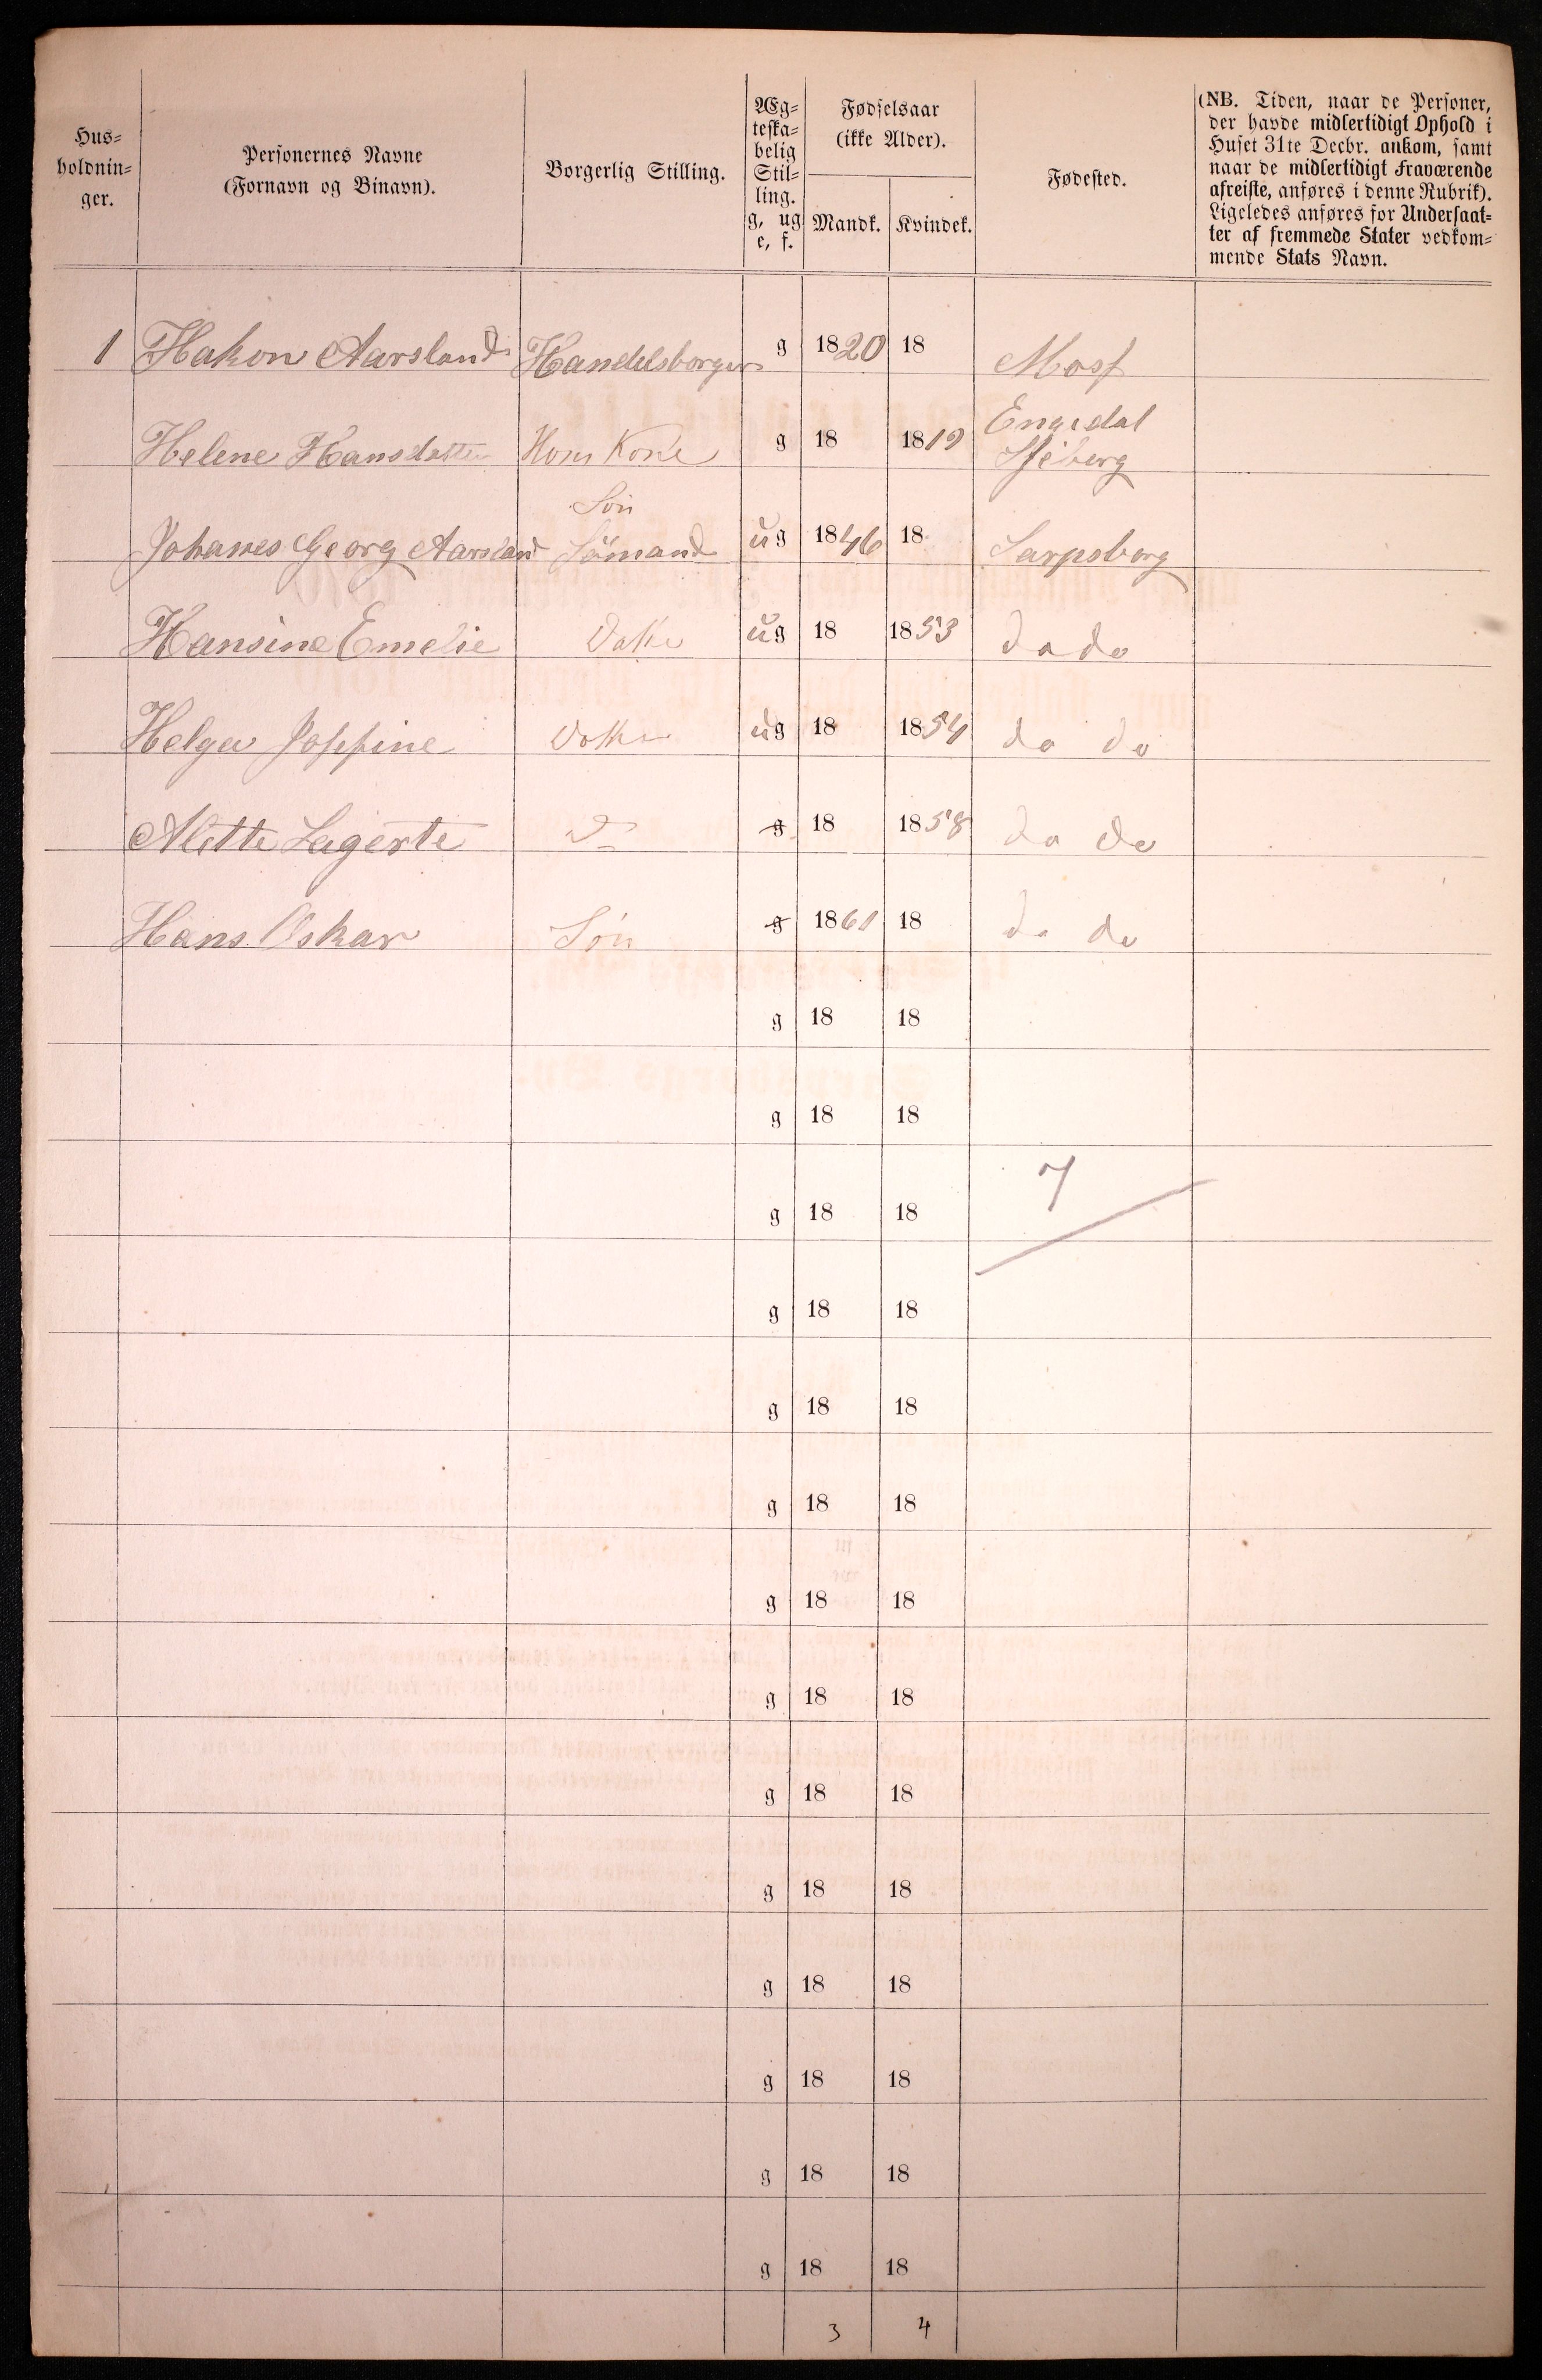 Hus=
holdnin=
ger.
Personernes Navne
(Fornavn og Binavn).
Borgerlig Stilling.
Æg=
teska=
belig
Stil=
ling.
g, ug
e, f.
Fødselsaar
(ikke Alder).
Mandk. Kvindek.
Fødested.
(NB. Tiden, naar de Personer,
der havde midlertidigt Ophold i
Huset 31te Decbr. ankom, samt
naar de midlertidigt Fraværende
afreiste, anføres i denne Rubrik).
Ligeledes anføres for Undersaat=
ter af fremmede Stater vedkom=
mende Stats Navn.
1 Hakon Aarsland Handelsborger g 1820 18 Moss
Helene Hansdatter Hans Kone g 18 1819 Engedal
Skjeberg
Søn
Johanes Georg Aarsland Sömand ug 1846 18 Sarpsborg
Hansine Emelie Datter ug 18 1853 do do
Helga Josefine Datter ug 18 1854 do do
Alette Lagerte D g 18 1858 do do
Hans Oskar Søn g 1861 18 do do
g 18 18
g 18 18
7
g 18 18
g 18 18
g 18 18
g 18 18
g 18 18
g 18 18
g 18 18
g 18 18
g 18 18
g 18 18
g 18 18
g 18 18
3 4